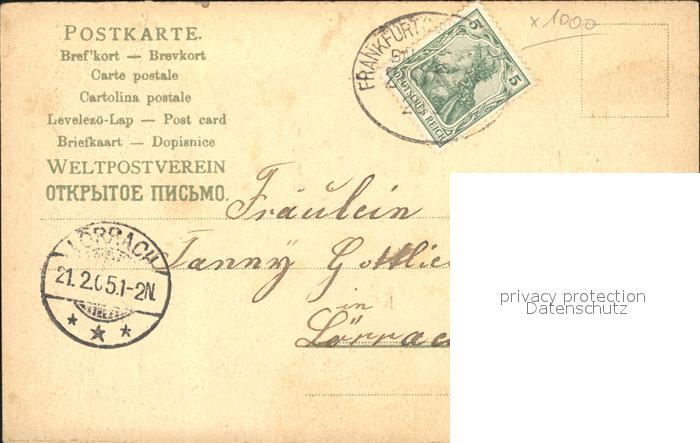 POSTKARTE.
Bref'kort — Brevkort
Carte postale
Cartolina postale
Levelező-Lap — Post card
Briefkaart — Dopisnice
WELTPOSTVEREIN
ОТКРЫТОЕ ПИСЬМО.
x 1000
FRANKFURT
5 5
DEUTSCHES REICH
Fräulein
Fanny Gottlie
in
Lörrac
LÖRRACH
21.2.05.1-2N.
privacy protection
Datenschutz